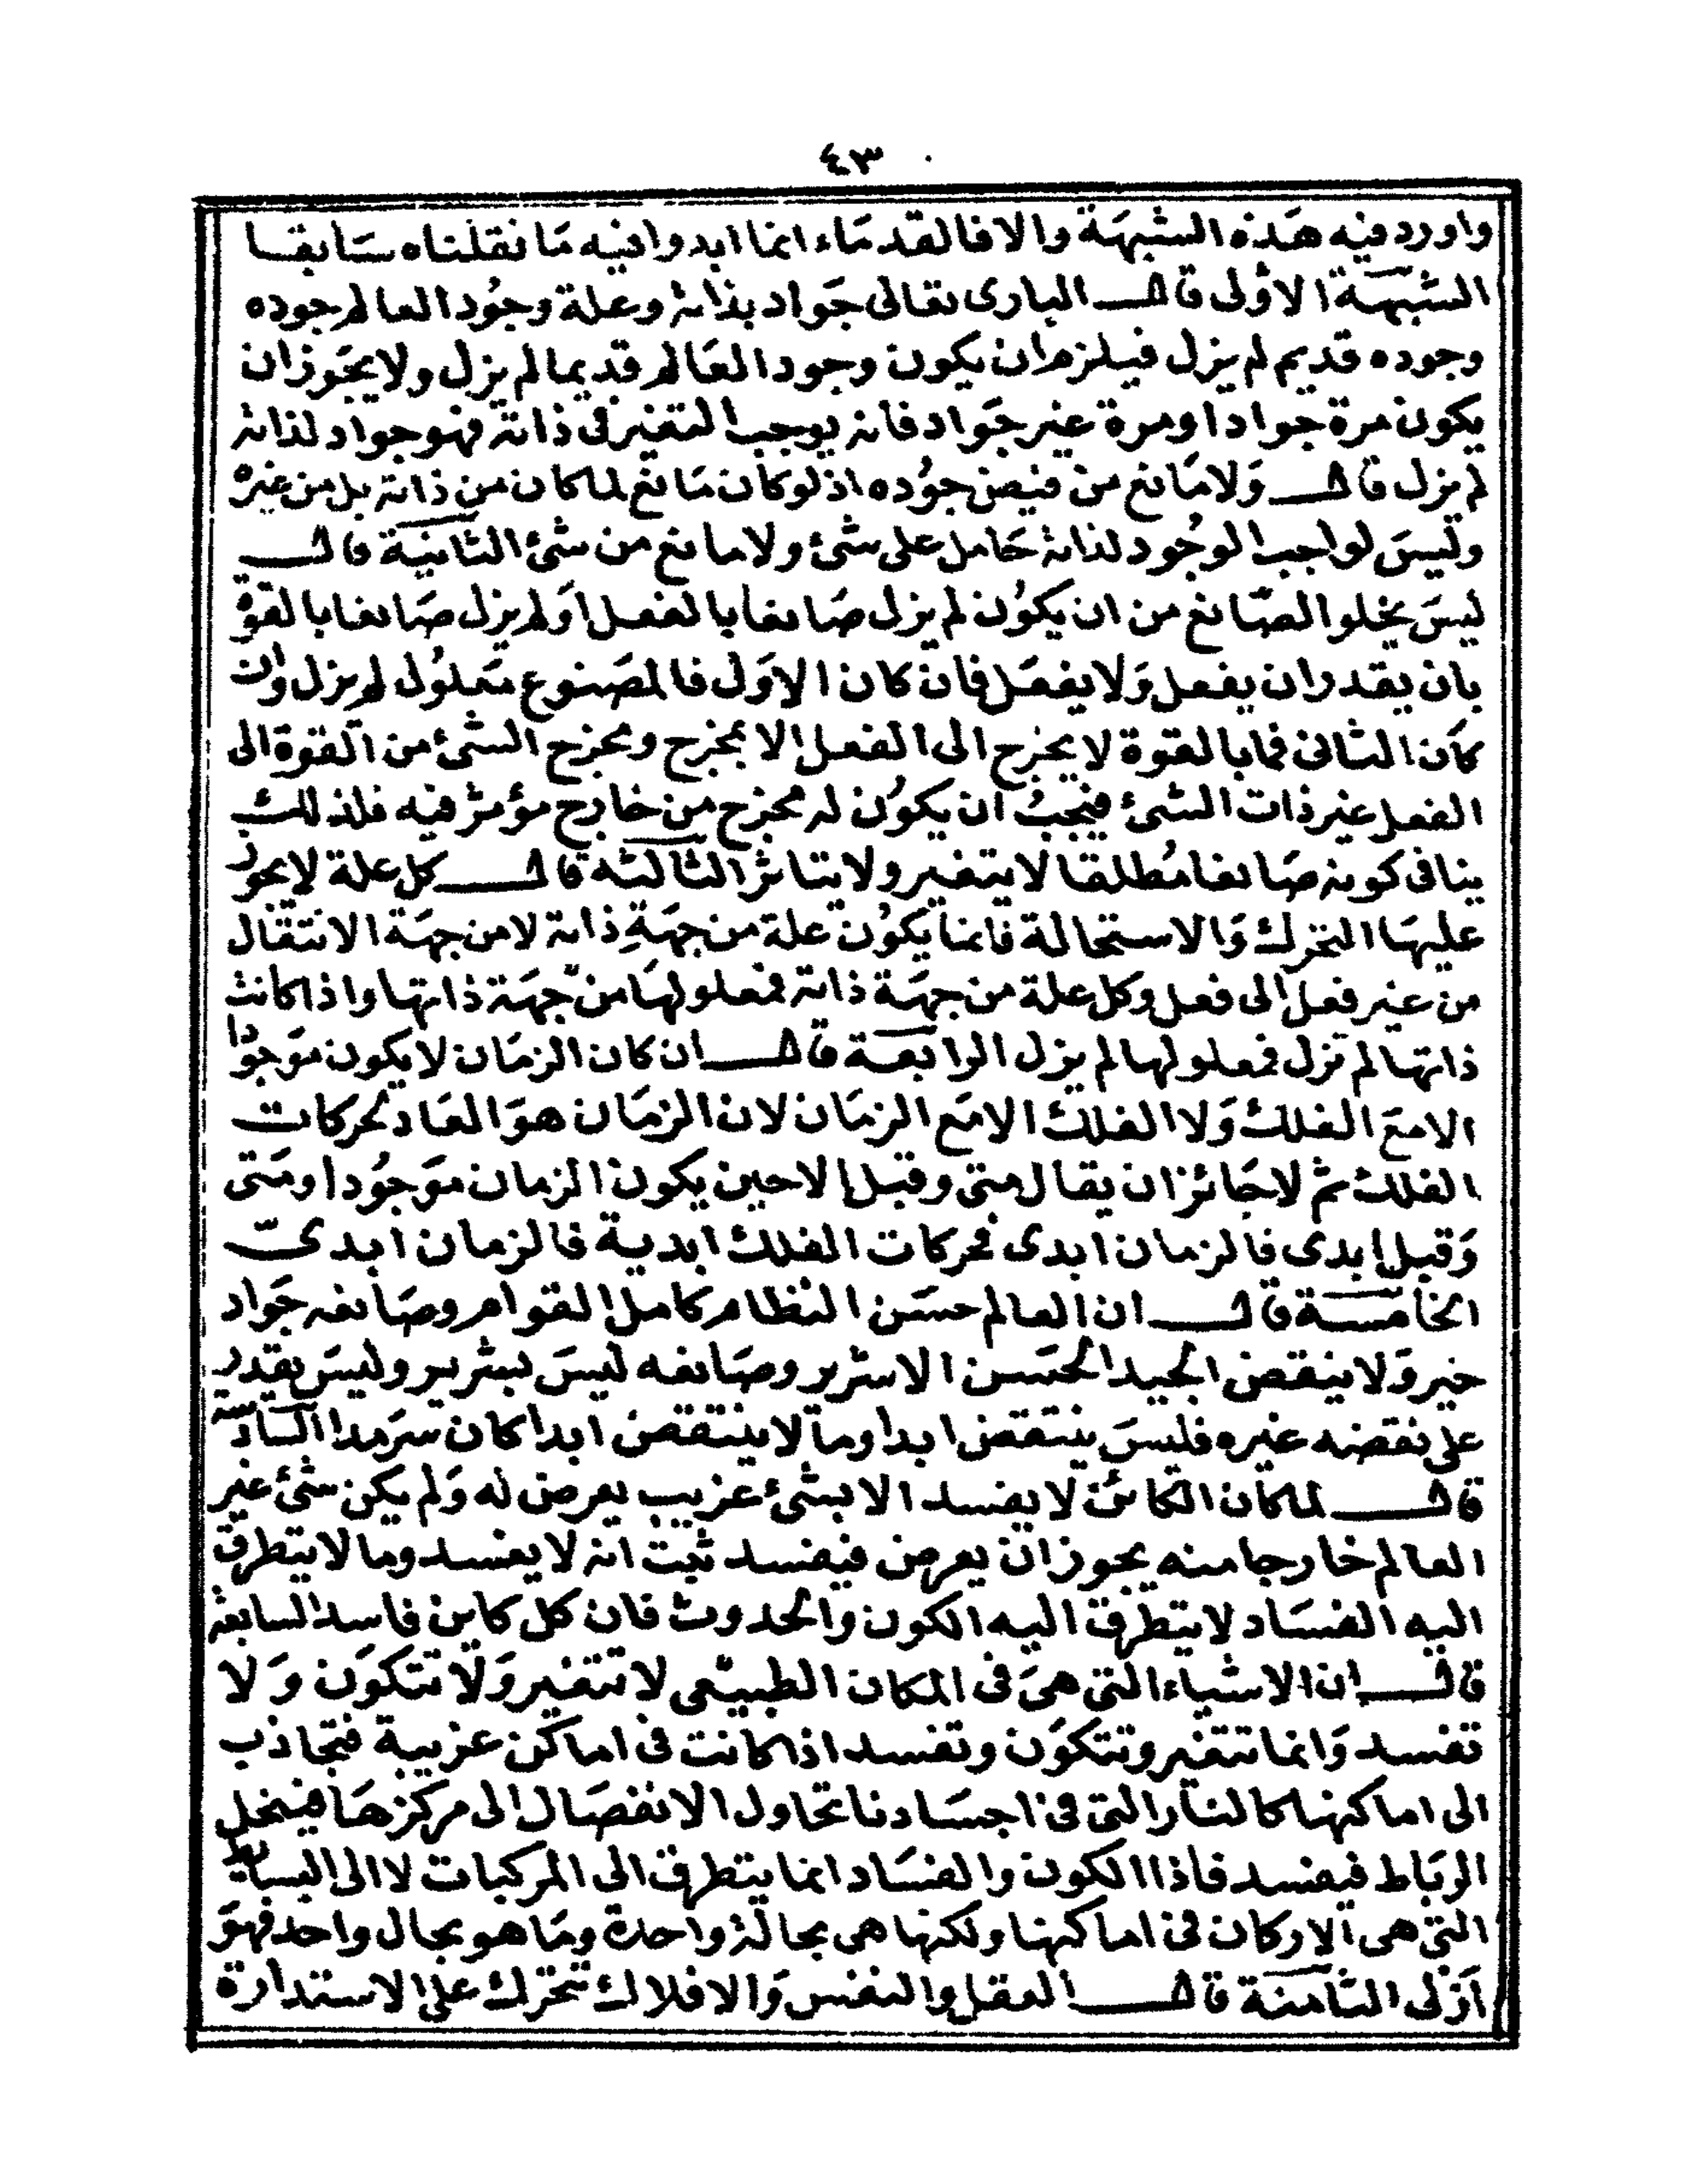 ٤٣
واورد فيه هذه الشبهة والا فالقدماء انما ابدوا فيه ما نقلناه سابقا
الشبهة الاولى قال البارى تعالى جواد بذاته وعلة وجود العالم جوده
وجوده قديم لم يزل فيلزم ان يكون وجود العالم قديما لم يزل ولا يجوز ان
يكون مرة جوادا ومرة غير جواد فانه يوجب التغير فى ذاته فهو جواد لذاته
لم يزل قال ولا مانع من فيض جوده اذ لو كان مانع لما كان من ذاته بل من غيره
وليس لواجب الوجود لذاته حامل على شئ ولا مانع من شئ الثانية قال
ليس يخلوا الصانع من ان يكون لم يزل صانعا بالفعل او لم يزل صانعا بالقوة
بان يقدر ان يفعل ولا يفعل فان كان الاول فالمصنوع معلول لم يزل وان
كان الثانى فما بالقوة لا يخرج الى الفعل الا بمخرج ومخرج الشئ من القوة الى
الفعل غير ذات الشئ فيجب ان يكون له مخرج من خارج مؤثر فيه فلذلك
ينافى كونه صانعا مطلقا لا يتغير ولا يتاثر الثالثة قال كل علة لا يجوز
عليها التحرك والاستحالة فانما يكون علة من جهة ذاته لا من جهة الانتقال
من غير فعل الى فعل وكل علة من جهة ذاته فمعلولها من جهة ذاتها واذا كانت
ذاتها لم تزل فمعلولها لم يزل الرابعة قال ان كان الزمان لا يكون موجودا
الا مع الفلك ولا الفلك الا مع الزمان لان الزمان هو العاد لحركات
الفلك ثم لا جائز ان يقال متى وقبل الا حين يكون الزمان موجودا ومتى
وقبل ابدى فالزمان ابدى فحركات الفلك ابدية فالزمان ابدى
الخامسة قال ان العالم حسن النظام كامل القوام وصانعه جواد
خير ولا ينقض الجيد الحسن الا شرير وصانعه ليس بشرير وليس يقدر
على نقضه غيره فليس ينتقض ابدا وما لا ينتقض ابدا كان سرمدا السادسة
قال لما كان الكائن لا يفسد الا بشئ غريب يعرض له ولم يكن شئ غير
العالم خارجا منه يجوز ان يعرض فيفسد ثبت انه لا يفسد وما لا يتطرق
اليه الفساد لا يتطرق اليه الكون والحدوث فان كل كاين فاسد السابعة
قال ان الاشياء التى هى فى المكان الطبيعى لا تتغير ولا تتكون ولا
تفسد وانما تتغير وتتكون وتفسد اذا كانت فى اماكن غريبة فتجاذب
الى اماكنها كالنار التى فى اجسادنا تحاول الانفصال الى مركزها فينحل
الرباط فيفسد فاذا الكون والفساد انما يتطرق الى المركبات لا الى البسائط
التى هى الاركان فى اماكنها ولكنها هى بحالة واحدة وما هو بحال واحد فهو
ازلى الثامنة قال العقل والنفس والافلاك تتحرك على الاستدارة